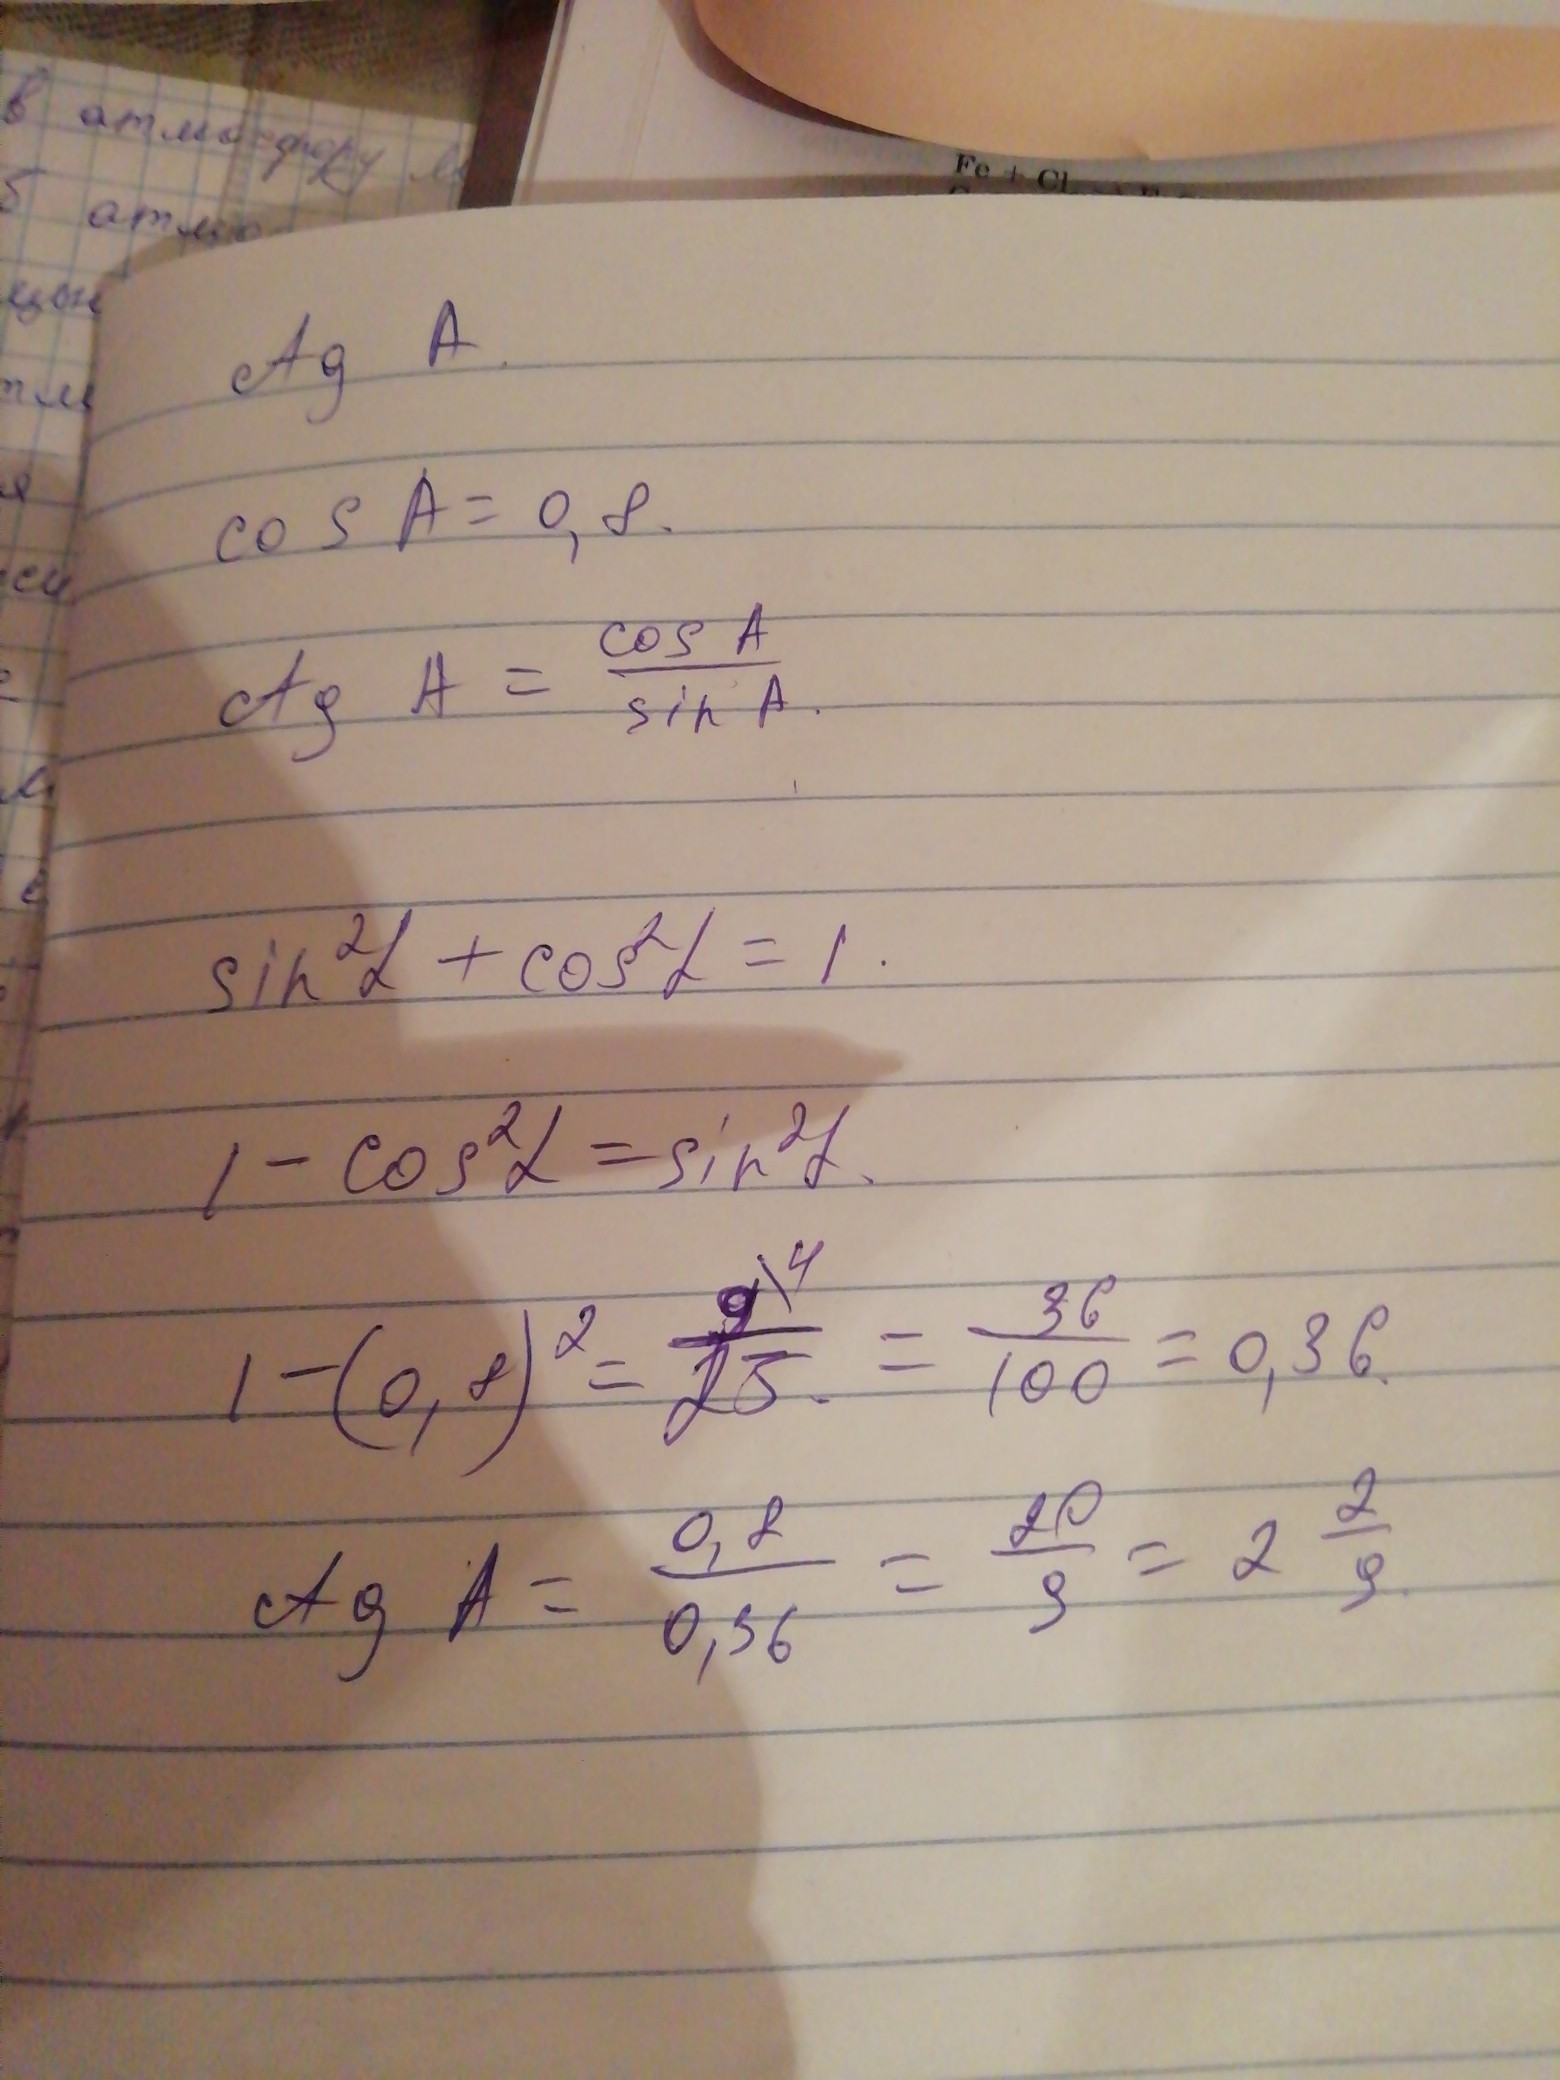 в атмосферу
б атмо
Fe + Cl
ctg A.
cos A = 0,8.
ctg A = cos A / sin A.
sin²α + cos²α = 1.
1 - cos²α = sin²α.
1 - (0,8)² = 9\4 / 25. = 36 / 100 = 0,36.
ctg A = 0,8 / 0,36 = 20 / 9 = 2 2/9.